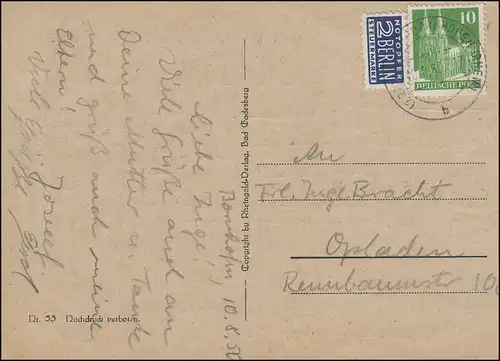 Bornhofen 10.8.50
Liebe Inge!
Viele Grüße auch an
Deine Mutter u. Tante
und grüß auch meine
Eltern!
Viele Grüße Josef
Nr. 55 Nachdruck verboten.
Copyright by Rheingold-Verlag, Bad Godesberg
NOTOPFER
2 BERLIN
STEUERMARKE
10
DEUTSCHE POST
An
Frl. Inge Bracht
Opladen
Rennbaumstr 10